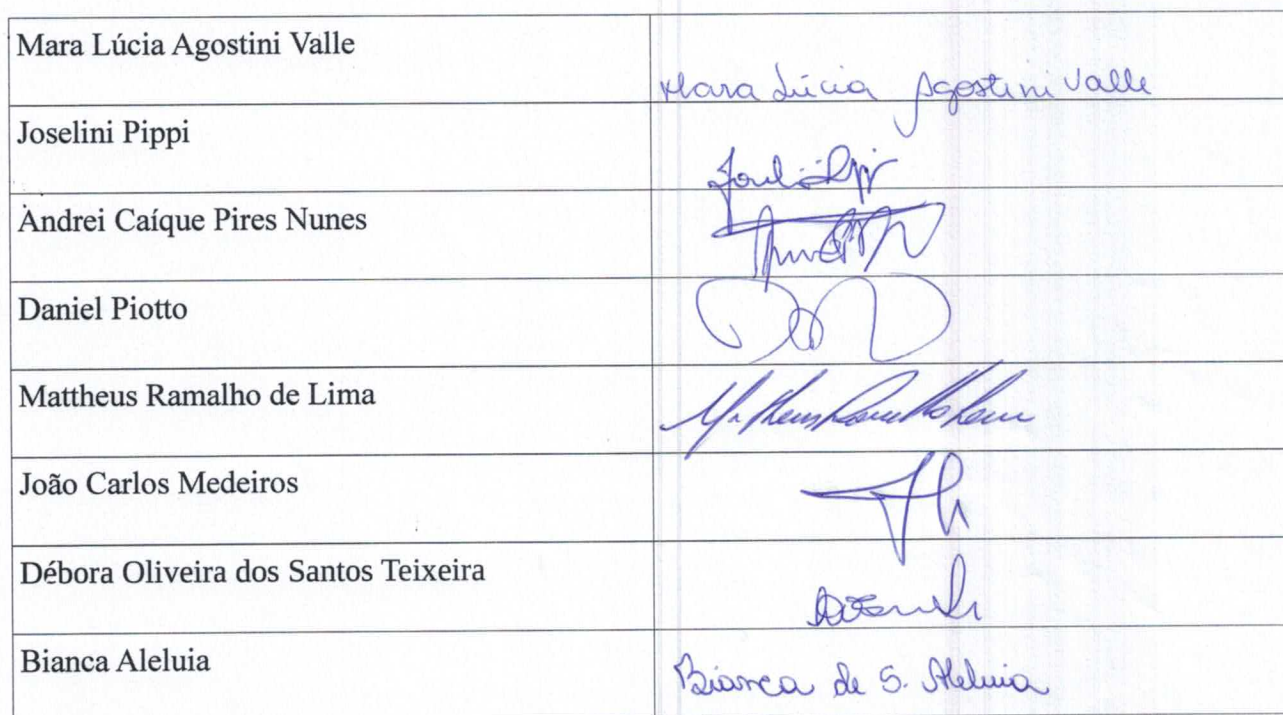 Mara Lúcia Agostini Valle
Mara Lúcia Agostini Valle
Joselini Pippi
Andrei Caíque Pires Nunes
Daniel Piotto
Mattheus Ramalho de Lima
João Carlos Medeiros
Débora Oliveira dos Santos Teixeira
Bianca Aleluia
Bianca de S. Aleluia